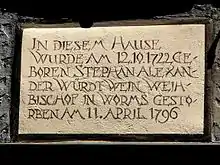 IN DIESEM HAUSE
WURDE AM 12.10.1722 GE
BOREN STEPHAN ALEXAN
DER WÜRDTWEIN WEIH
BISCHOF IN WORMS GESTOR
BEN AM 11. APRIL 1796